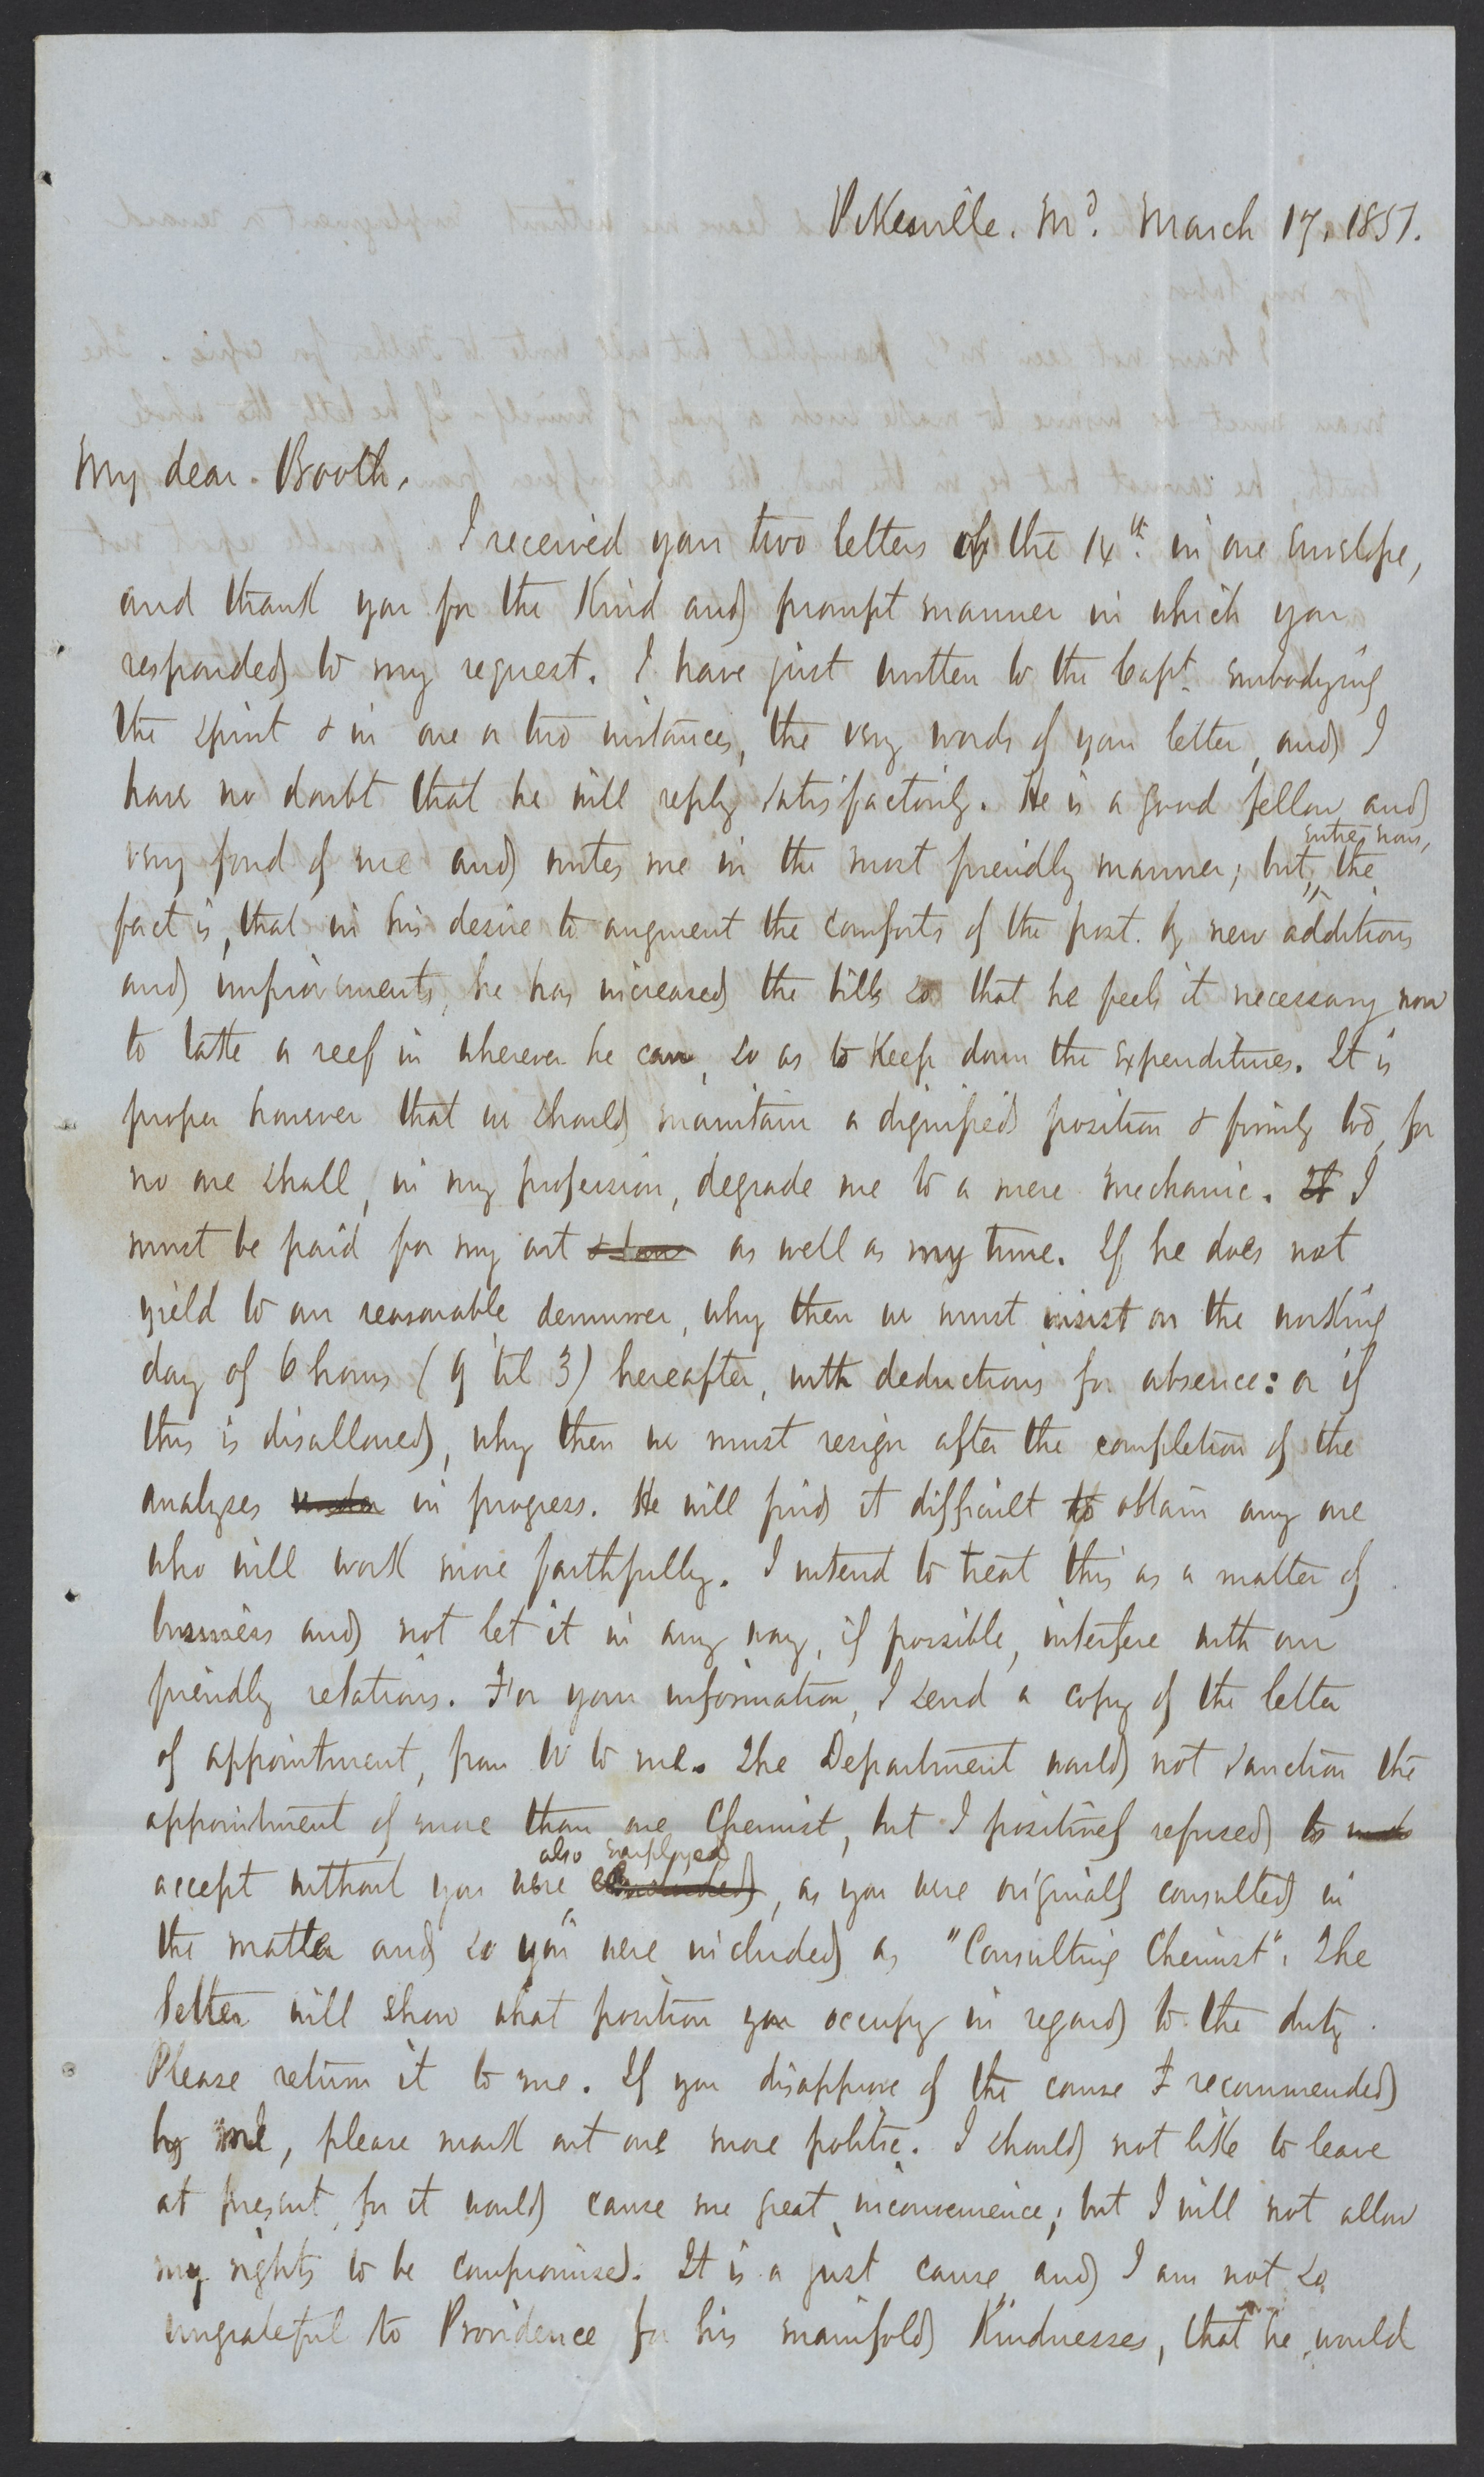 Pikesville. Md. March 17, 1851.
My dear Booth,
I received your two letters of the 14th. in one envelope,
and thank you for the kind and prompt manner in which you
responded to my request. I have just written to the Capt. embodying
the spirit & in one or two instances, the very words of your letter, and I
have no doubt that he will reply satisfactorily. He is a good fellow and
very fond of me and writes me in the most friendly manner; but, entre nous, the
fact is, that in his desire to augment the comforts of the post. by new additions
and improvements, he has increased the bills so that he feels it necessary now
to take a reef in wherever he can, so as to keep down the expenditures. It is
proper however that we should maintain a dignified position & firmly too, for
no one shall, in my profession, degrade me to a mere mechanic. It I
must be paid for my art as well as my time. If he does not
yield to our reasonable demurrer, why then we must insist on the working
day of 6 hours (9 til 3) hereafter, with deductions for absence: or if
this is disallowed, why then we must resign after the completion of the
analyses under in progress. He will find it difficult to obtain any one
who will work more faithfully. I intend to treat this as a matter of
business and not let it in any way, if possible, interfere with our
friendly relations. For your information, I send a copy of the letter
of appointment, from W to me. The Department would not sanction the
appointment of more than one Chemist, but I positively refused to
accept without you were also employed, as you were originally consulted in
the matter and so you were included as "Consulting Chemist". The
letter will show what position you occupy in regard to the duty.
Please return it to me. If you disapprove of the course I recommended
by me, please mark out one more politic. I should not like to leave
at present, for it would cause me great inconvenience; but I will not allow
my rights to be compromised. It is a just cause and I am not so
ungrateful to Providence for his manifold kindnesses, that he would